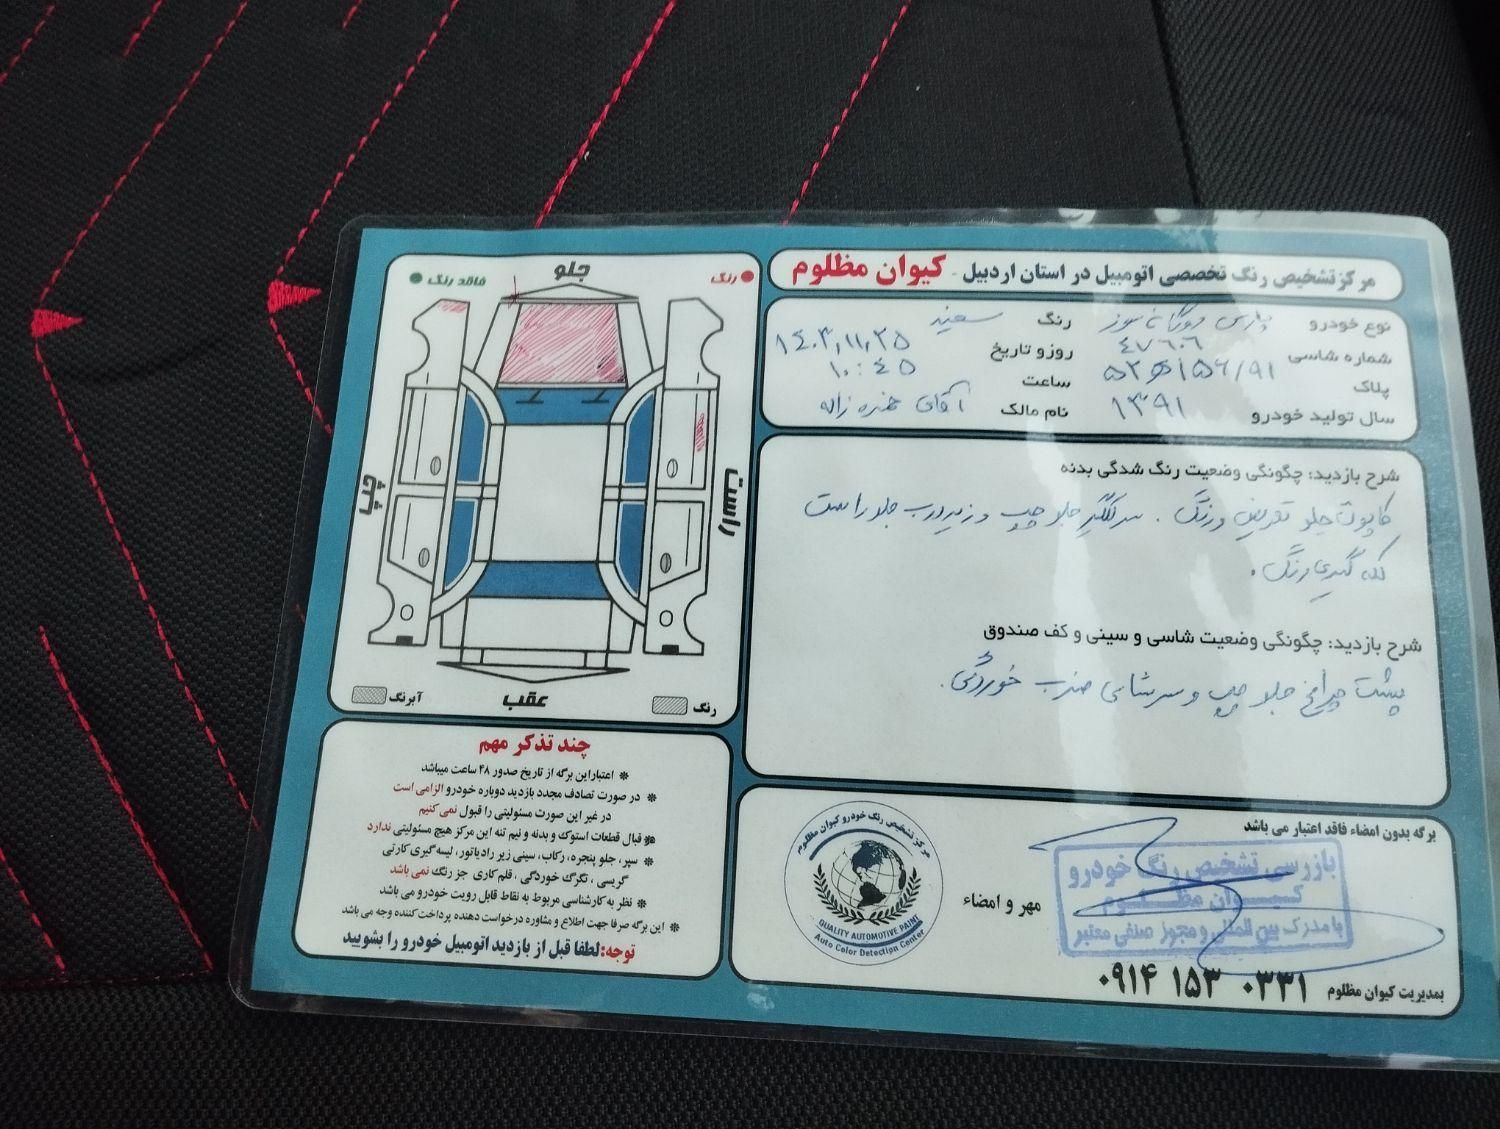 مرکز تشخیص رنگ تخصصی اتومبیل در استان اردبیل - کیوان مظلوم
نوع خودرو پارس دوگانه سوز رنگ سفید
شماره شاسی ۴۷۶۰۶ روز و تاریخ ۱۴۰۳,۱۱,۲۵
پلاک ۵۲ ۱۵۶/۹۱ ساعت ۱۰:۴۵
سال تولید خودرو ۱۳۹۱ نام مالک آقای حمزه زاده
شرح بازدید: چگونگی وضعیت رنگ شدگی بدنه
کاپوت جلو تعویض و رنگ . سرگلگیر جلو چپ و زیر درب جلو راست
لکه گیری رنگ .
شرح بازدید: چگونگی وضعیت شاسی و سینی و کف صندوق
پشت چراغ جلو چپ و سرشاسی ضرب خوردگی .
برگه بدون امضاء فاقد اعتبار می باشد
بازرسی تشخیص رنگ خودرو
کیوان مظلوم
با مدرک بین المللی و مجوز صنفی معتبر
مهر و امضاء
مرکز تشخیص رنگ خودرو کیوان مظلوم
QUALITY AUTOMOTIVE PAINT
Auto Color Detection Center
بمدیریت کیوان مظلوم ۰۹۱۴ ۱۵۳ ۰۳۳۱
رنگ
جلو
فاقد رنگ
راست
چپ
عقب
رنگ
آبرنگ
چند تذکر مهم
❊ اعتبار این برگه از تاریخ صدور ۴۸ ساعت میباشد
❊ در صورت تصادف مجدد بازدید دوباره خودرو الزامی است
در غیر این صورت مسئولیتی را قبول نمی کنیم
❊ قبال قطعات استوک و بدنه و نیم تنه این مرکز هیچ مسئولیتی ندارد
❊ سپر، جلو پنجره، رکاب، سینی زیر رادیاتور، لیسه گیری کارتی
گریسی ، تگرگ خوردگی ، قلم کاری جز رنگ نمی باشد
❊ نظر به کارشناسی مربوط به نقاط قابل رویت خودرو می باشد
❊ این برگه صرفا جهت اطلاع و مشاوره درخواست دهنده پرداخت کننده وجه می باشد
توجه: لطفا قبل از بازدید اتومبیل خودرو را بشویید